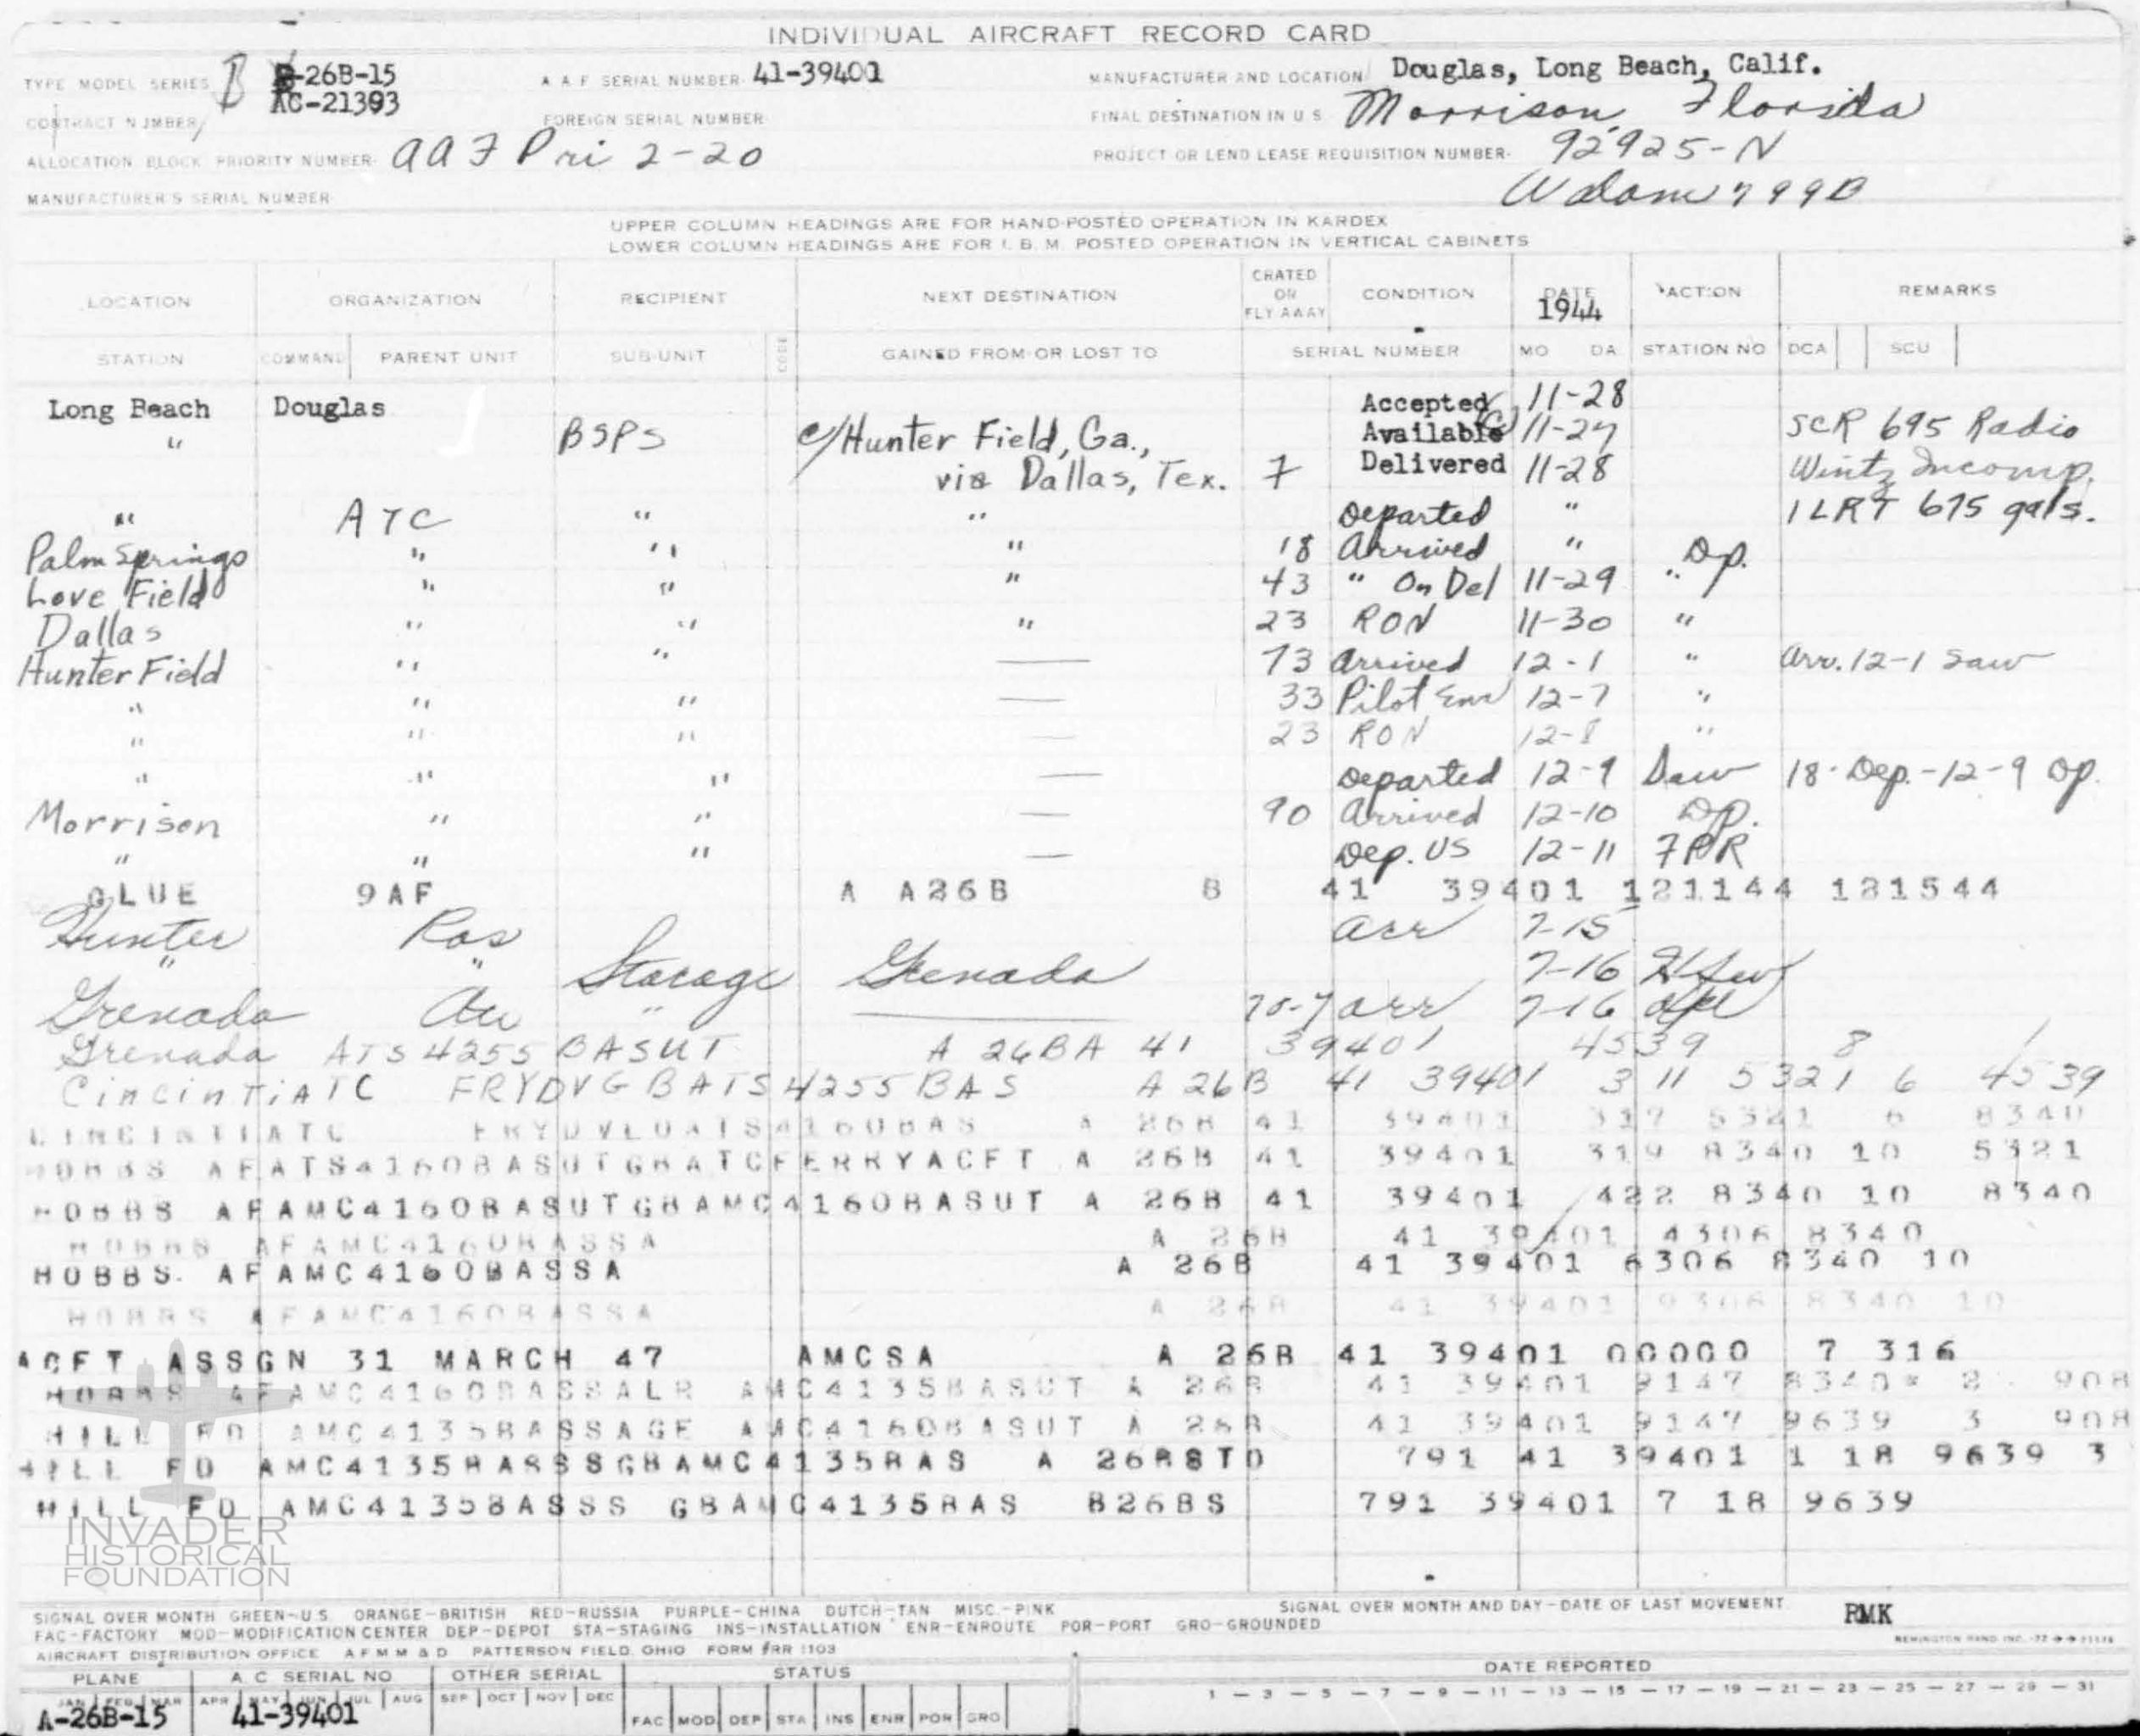 INDIVIDUAL AIRCRAFT RECORD CARD
TYPE MODEL SERIES B -26B-15 A A F SERIAL NUMBER 41-39401 MANUFACTURER AND LOCATION Douglas, Long Beach, Calif.
CONTRACT NUMBER AC-21393 FOREIGN SERIAL NUMBER FINAL DESTINATION IN U S Morrison Florida
ALLOCATION BLOCK PRIORITY NUMBER- AAF Pri 2-20 PROJECT OR LEND LEASE REQUISITION NUMBER- 92925-N
MANUFACTURER'S SERIAL NUMBER
UPPER COLUMN HEADINGS ARE FOR HAND-POSTED OPERATION IN KARDEX
LOWER COLUMN HEADINGS ARE FOR I. B. M. POSTED OPERATION IN VERTICAL CABINETS
LOCATION ORGANIZATION RECIPIENT NEXT DESTINATION CRATED OR FLY AWAY CONDITION DATE 1944 ACTION REMARKS
STATION COMMAND PARENT UNIT SUB-UNIT CODE GAINED FROM-OR LOST TO SERIAL NUMBER MO DA STATION NO DCA SCU
Long Beach Douglas Accepted 11-28
" BSPS c/Hunter Field, Ga., Available 11-27 SCR 695 Radio
via Dallas, Tex. 7 Delivered 11-28 Wintz Incomp.
" ATC " " Departed " 1 LRT 675 gals.
Palm Springs " " " 18 Arrived " Op.
Love Field " " " 43 " On Del 11-29 "
Dallas " " " 23 RON 11-30 "
Hunter Field " " — 73 Arrived 12-1 " Arr. 12-1 Saw
" " " — 33 Pilot Enr 12-7 "
" " " — 23 RON 12-8 "
" " " — Departed 12-9 Saw 18-Dep.-12-9 Op.
Morrison " " — 90 Arrived 12-10 Op.
" " " — Dep. US 12-11 FPR
GLUE 9AF A A26B B 41 39401 121144 121544
Hunter arr 7-15
" " Storage Grenada 7-16
Grenada " — arr 7-16
Grenada ATS 4255 BASUT A 26BA 41 39401 4539 8 1
CincintiATC FRYDVGBATS4255BAS A 26B 41 39401 3 11 5321 6 4539
CINCINTIATC A 26B 41 39401 317 5321 6 8340
HOBBS AFATS4160BASUTGBATCFERRYACFT A 26B 41 39401 319 8340 10 5321
HOBBS AFAMC4160BASUTGBAMC4160BASUT A 26B 41 39401 422 8340 10 8340
HOBBS AFAMC4160BASSA A 26B 41 39401 4306 8340
HOBBS AFAMC4160BASSA A 26B 41 39401 6306 8340 10
HOBBS AFAMC4160BASSA A 26B 41 39401 9306 8340 10
ACFT ASSGN 31 MARCH 47 AMCSA A 26B 41 39401 00000 7 316
HOBBS AFAMC4160BASSALR AMC4135BASUT A 26B 41 39401 9147 8340 2 908
HILL FD AMC4135BASSAGE AMC4160BASUT A 26B 41 39401 9147 9639 3 908
HILL FD AMC4135BASSSGBAMC4135BAS A 26BSTD 791 41 39401 1 18 9639 3
HILL FD AMC4135BASSS GBAMC4135BAS B26BS 791 39401 7 18 9639
INVADER
HISTORICAL
FOUNDATION
SIGNAL OVER MONTH GREEN-U.S. ORANGE-BRITISH RED-RUSSIA PURPLE-CHINA DUTCH-TAN MISC.-PINK SIGNAL OVER MONTH AND DAY-DATE OF LAST MOVEMENT. RMK
FAC-FACTORY MOD-MODIFICATION CENTER DEP-DEPOT STA-STAGING INS-INSTALLATION ENR-ENROUTE POR-PORT GRO-GROUNDED
AIRCRAFT DISTRIBUTION OFFICE A F M M & D PATTERSON FIELD, OHIO FORM #RR 1103 REMINGTON RAND INC.
PLANE A C SERIAL NO OTHER SERIAL STATUS DATE REPORTED
JAN FEB MAR APR MAY JUN JUL AUG SEP OCT NOV DEC 1 - 3 - 5 - 7 - 9 - 11 - 13 - 15 - 17 - 19 - 21 - 23 - 25 - 27 - 29 - 31
A-26B-15 41-39401 FAC MOD DEP STA INS ENR POR GRO